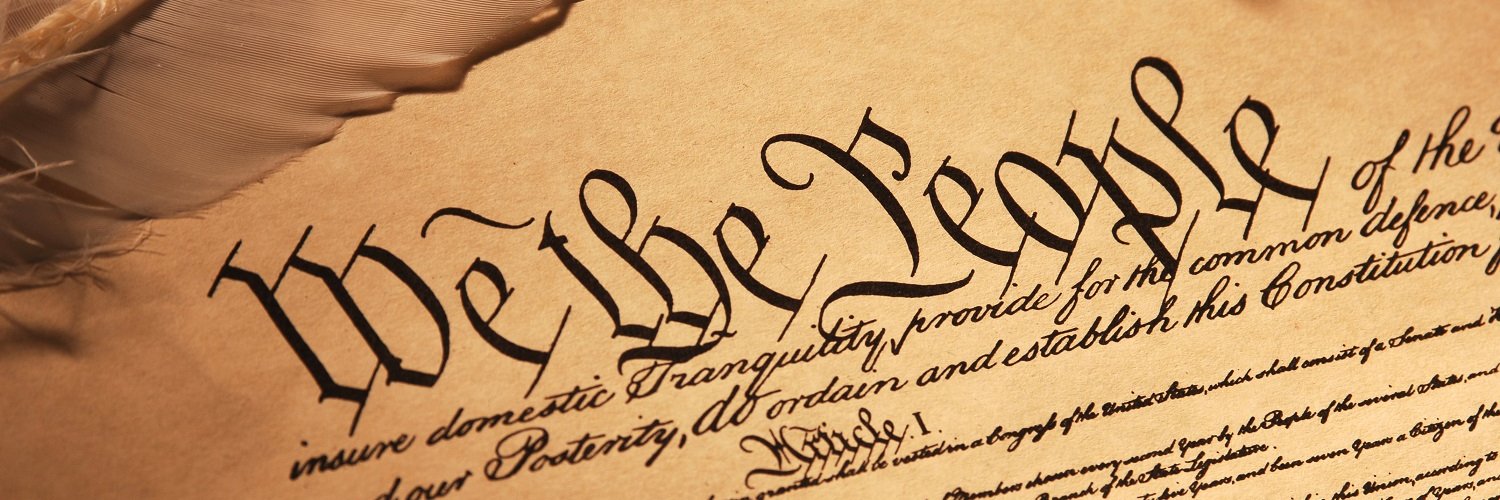 We the People of the
insure domestic Tranquility, provide for the common defence,
our Posterity, do ordain and establish this Constitution
Article. I.
granted shall be vested in a Congress of the United States, which shall consist of a Senate and
Members chosen every second Year by the People of the several States, and
Branch of the State Legislature.
Years, and been seven Years a Citizen of the
this Union, according to
Years, and